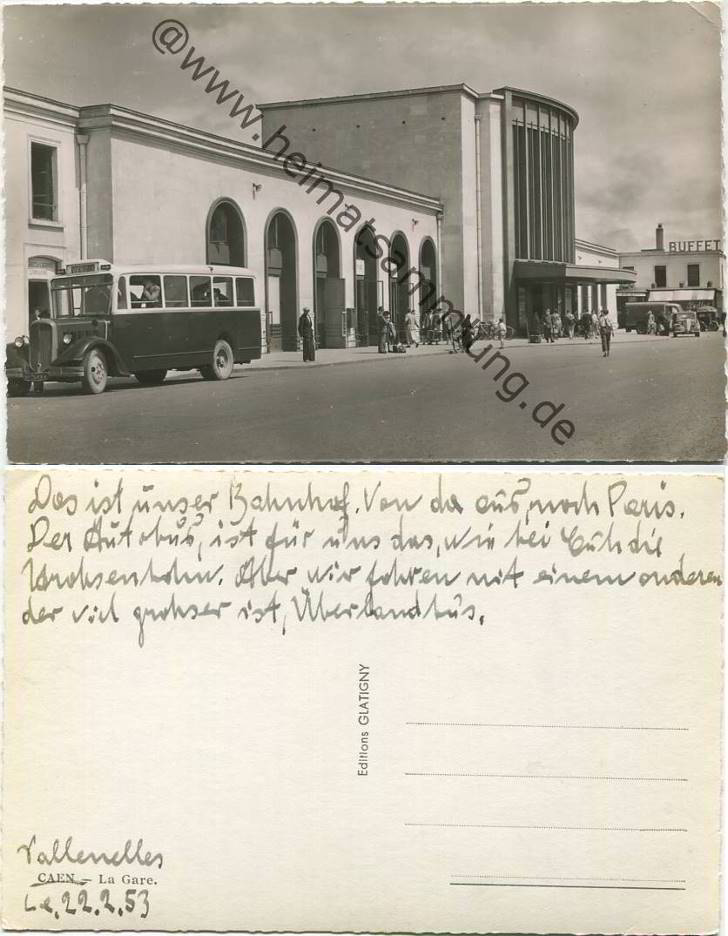 @www.heimatsammlung.de
BUFFET
Das ist unser Bahnhof. Von da aus, noch Paris.
Der Autobus, ist für uns das, wie bei Euch die
Strohsenbohn. Aber wir fohren mit einem onderen
der viel grohser ist, Überlandbus.
Editions GLATIGNY
CAEN – La Gare.
Le, 22.2.53